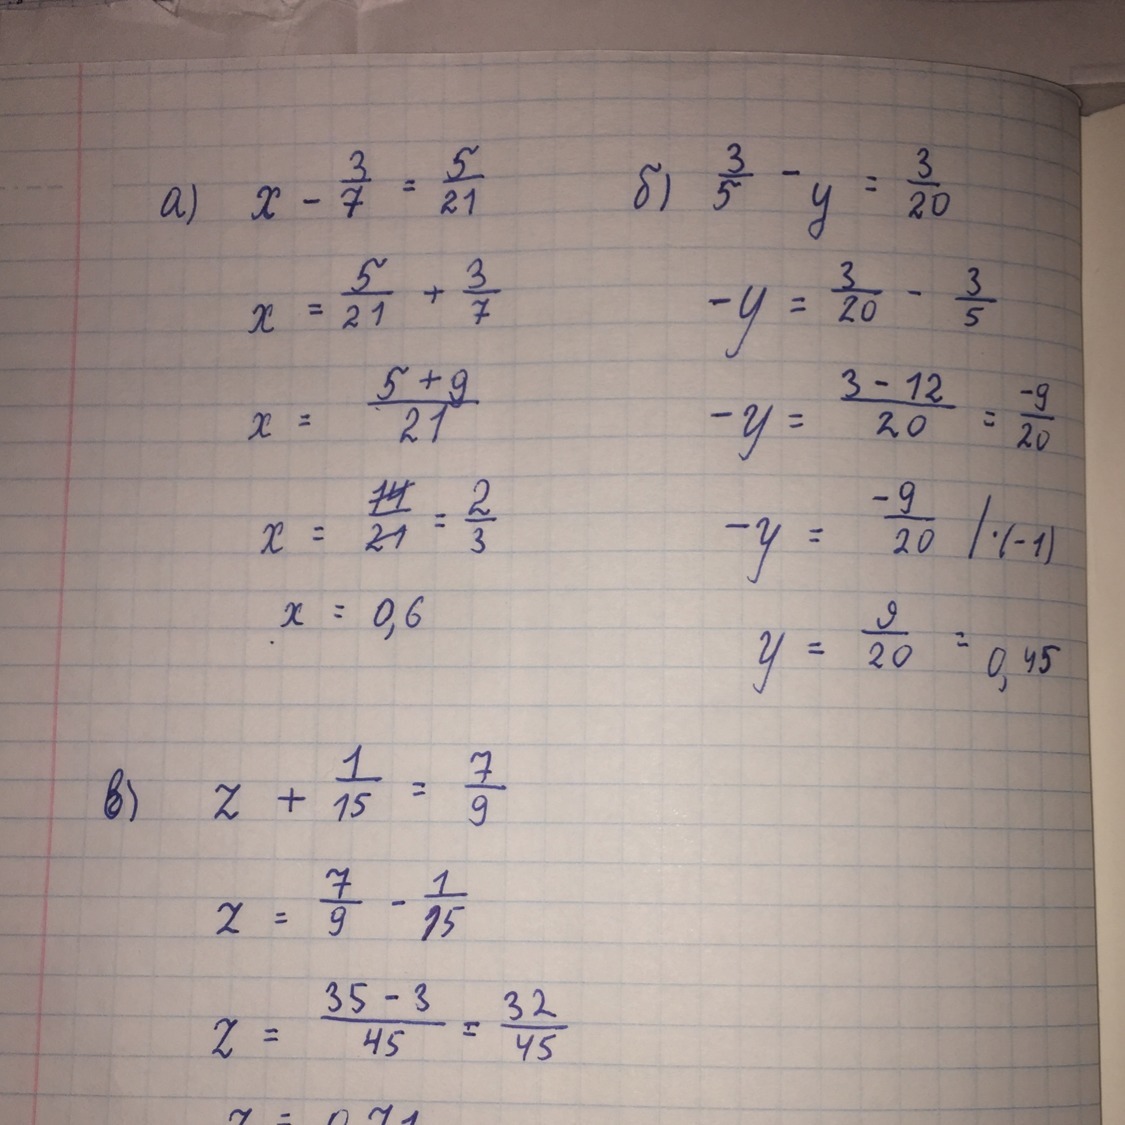 а) x - 3/7 = 5/21
x = 5/21 + 3/7
x = (5 + 9)/21
x = 14/21 = 2/3
x = 0,6
б) 3/5 - y = 3/20
-y = 3/20 - 3/5
-y = (3 - 12)/20 = -9/20
-y = -9/20 /·(-1)
y = 9/20 = 0,45
в) z + 1/15 = 7/9
z = 7/9 - 1/15
z = (35 - 3)/45 = 32/45
z = 0,71